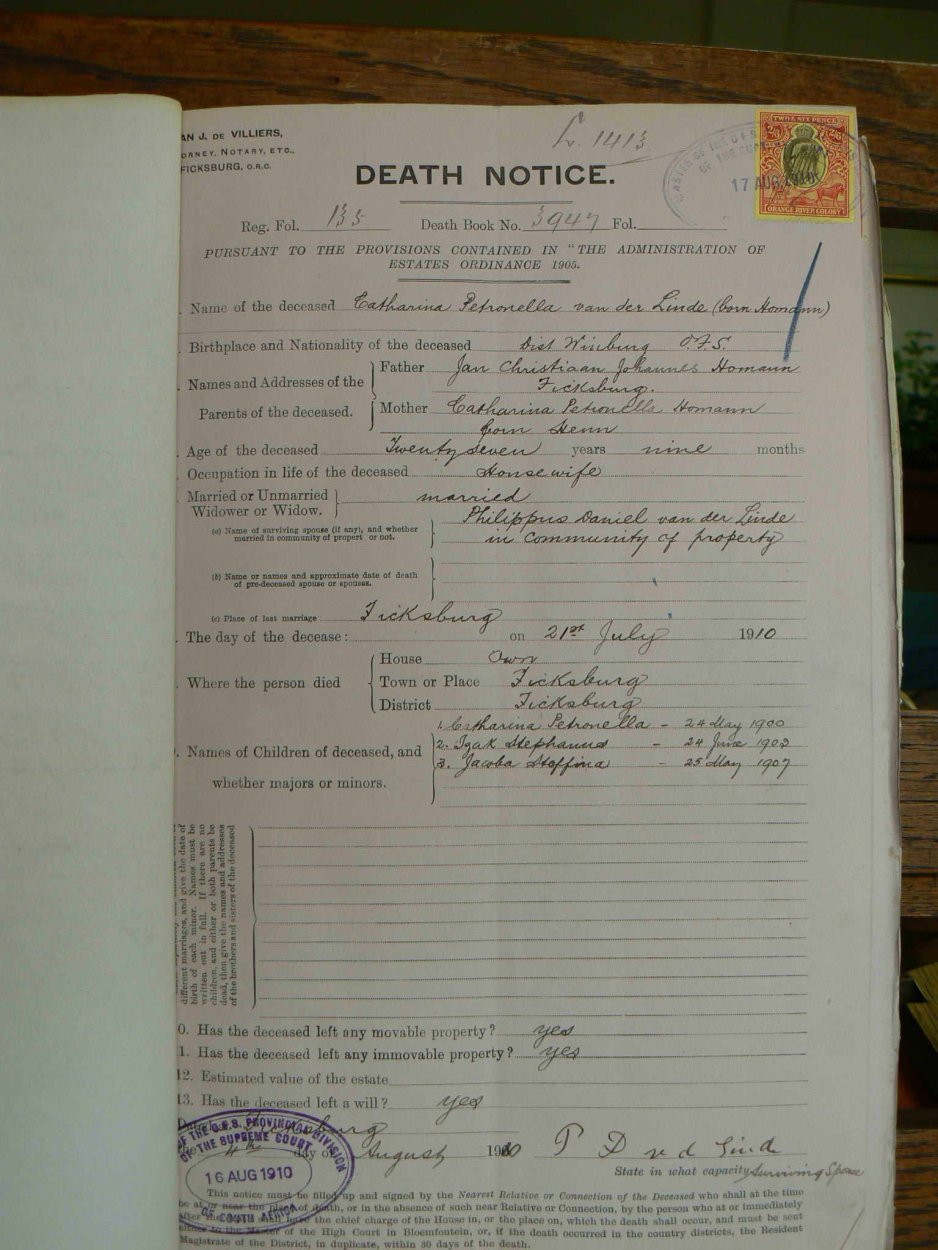 AN J. DE VILLIERS,
ORNEY, NOTARY, ETC.,
FICKSBURG, O.R.C.
L. 1413
TWO & SIX PENCE
2/6 2/6
ORANGE RIVER COLONY
17 AUG 1910
DEATH NOTICE.
Reg. Fol. 135 Death Book No. 3947 Fol.
PURSUANT TO THE PROVISIONS CONTAINED IN "THE ADMINISTRATION OF
ESTATES ORDINANCE 1905.
Name of the deceased Catharina Petronella van der Linde (born Homann)
Birthplace and Nationality of the deceased Dist Winburg O.F.S.
Names and Addresses of the Father Jan Christiaan Johannes Homann
Ficksburg.
Parents of the deceased. Mother Catharina Petronella Homann
born Henn
Age of the deceased Twenty seven years nine months
Occupation in life of the deceased Housewife
Married or Unmarried married
Widower or Widow.
(a) Name of surviving spouse (if any), and whether married in community of propert or not. Philippus Daniel van der Linde
in community of property
(b) Name or names and approximate date of death
of pre-deceased spouse or spouses.
(c) Place of last marriage Ficksburg
The day of the decease: on 21st July 1910
House Own
Where the person died Town or Place Ficksburg
District Ficksburg
1. Catharina Petronella - 24 May 1900
Names of Children of deceased, and 2. Izak Stephanus - 24 June 1903
3. Jacoba Stoffina - 25 May 1907
whether majors or minors.
different marriages, and give the date of
birth of each minor. Names must be
written out in full. If there are no
children, and either or both parents be
dead, then give the names and addresses
of the brothers and sisters of the deceased
0. Has the deceased left any movable property? yes
1. Has the deceased left any immovable property? yes
12. Estimated value of the estate
13. Has the deceased left a will? yes
Ficksburg
4th day of August 1910 P D v d Lind
State in what capacity Surviving Spouse
OF THE O.F.S. PROVINCIAL DIVISION
OF THE SUPREME COURT
16 AUG 1910
OF SOUTH AFRICA
This notice must be filled up and signed by the Nearest Relative or Connection of the Deceased who shall at the time
be at or near the place of death, or in the absence of such near Relative or Connection, by the person who at or immediately
after the death shall have the chief charge of the House in, or the place on, which the death shall occur, and must be sent
either to the Master of the High Court in Bloemfontein, or, if the death occurred in the country districts, the Resident
Magistrate of the District, in duplicate, within 30 days of the death.